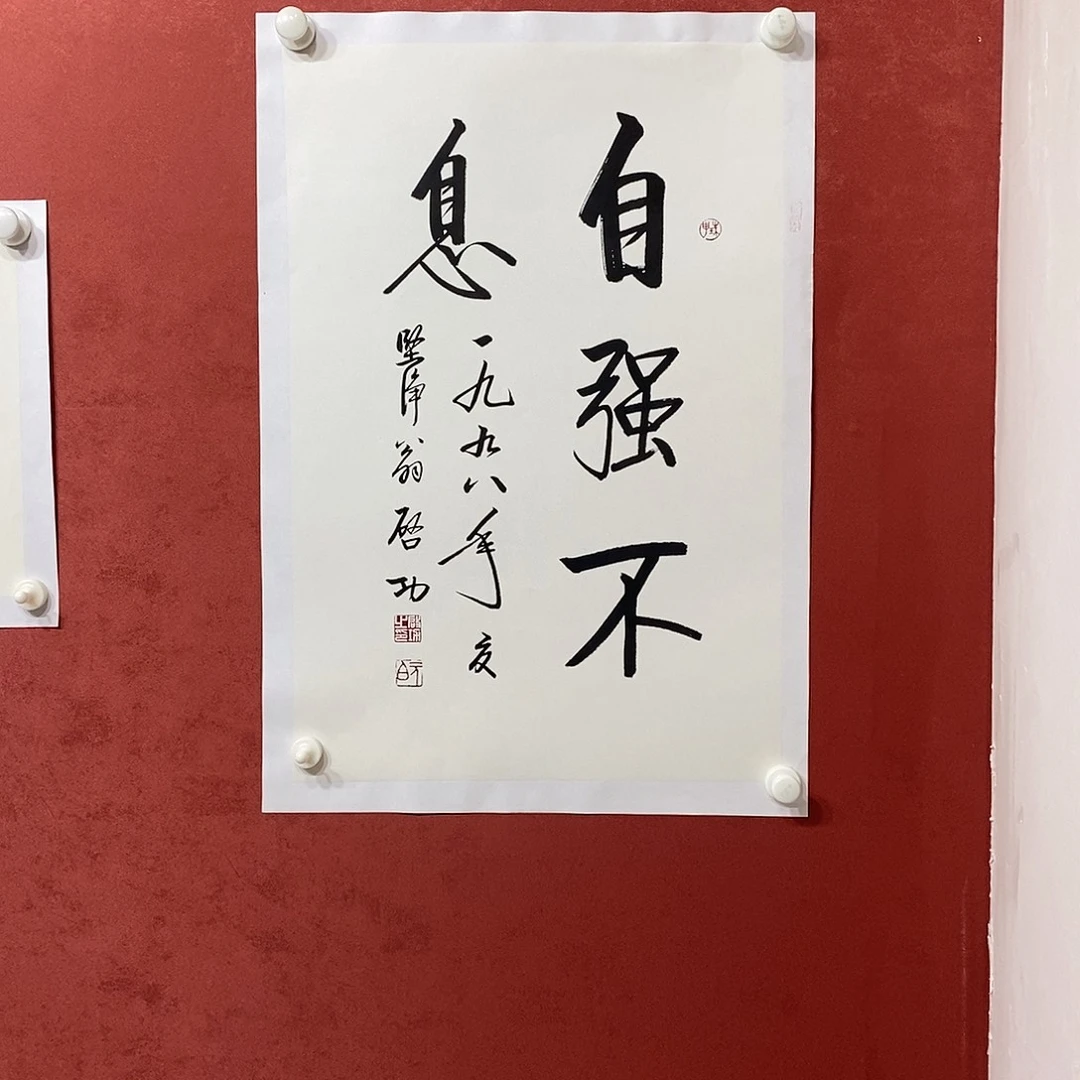 自强不
息
一九九八年夏
坚净翁启功